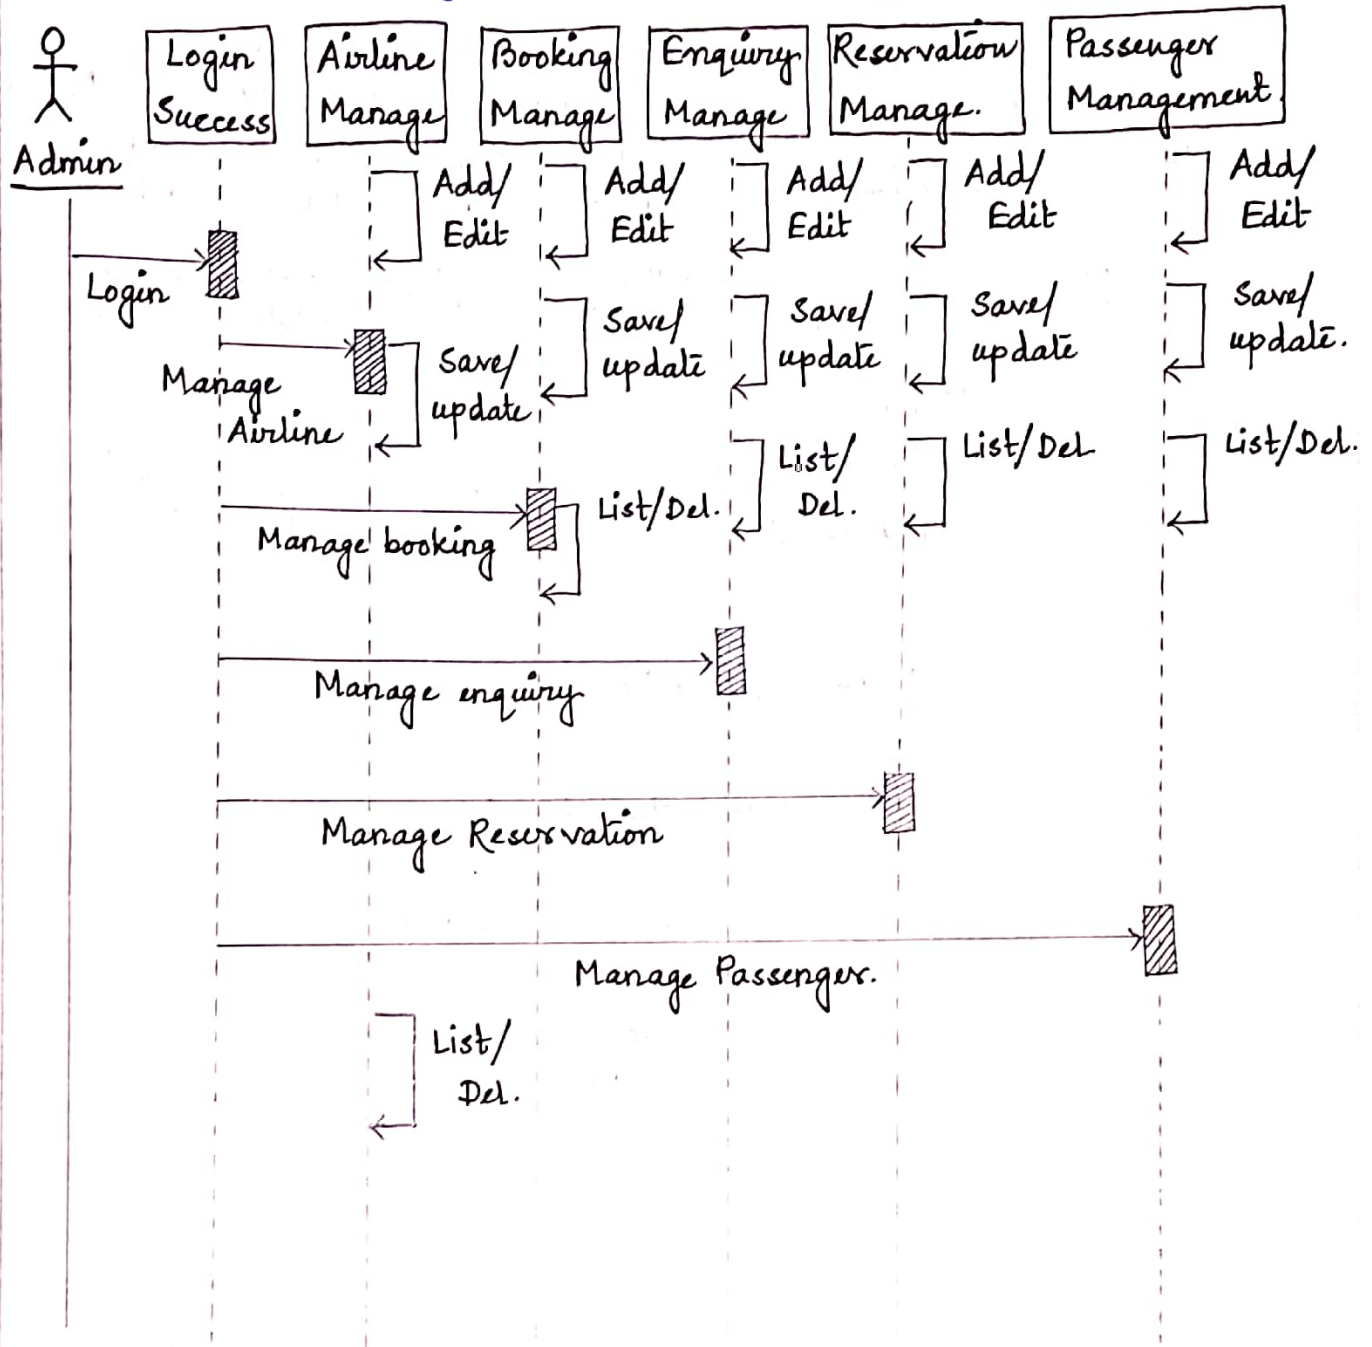 Login
Success
Airline
Manage
Booking
Manage
Enquiry
Manage
Reservation
Manage.
Passenger
Management
Admin
Add/
Edit
Add/
Edit
Add/
Edit
Add/
Edit
Add/
Edit
Login
Save/
update
Save/
update
Save/
update
Save/
update
Save/
update.
Manage
Airline
List/Del.
List/
Del.
List/Del
List/Del.
Manage booking
Manage enquiry
Manage Reservation
Manage Passenger.
List/
Del.